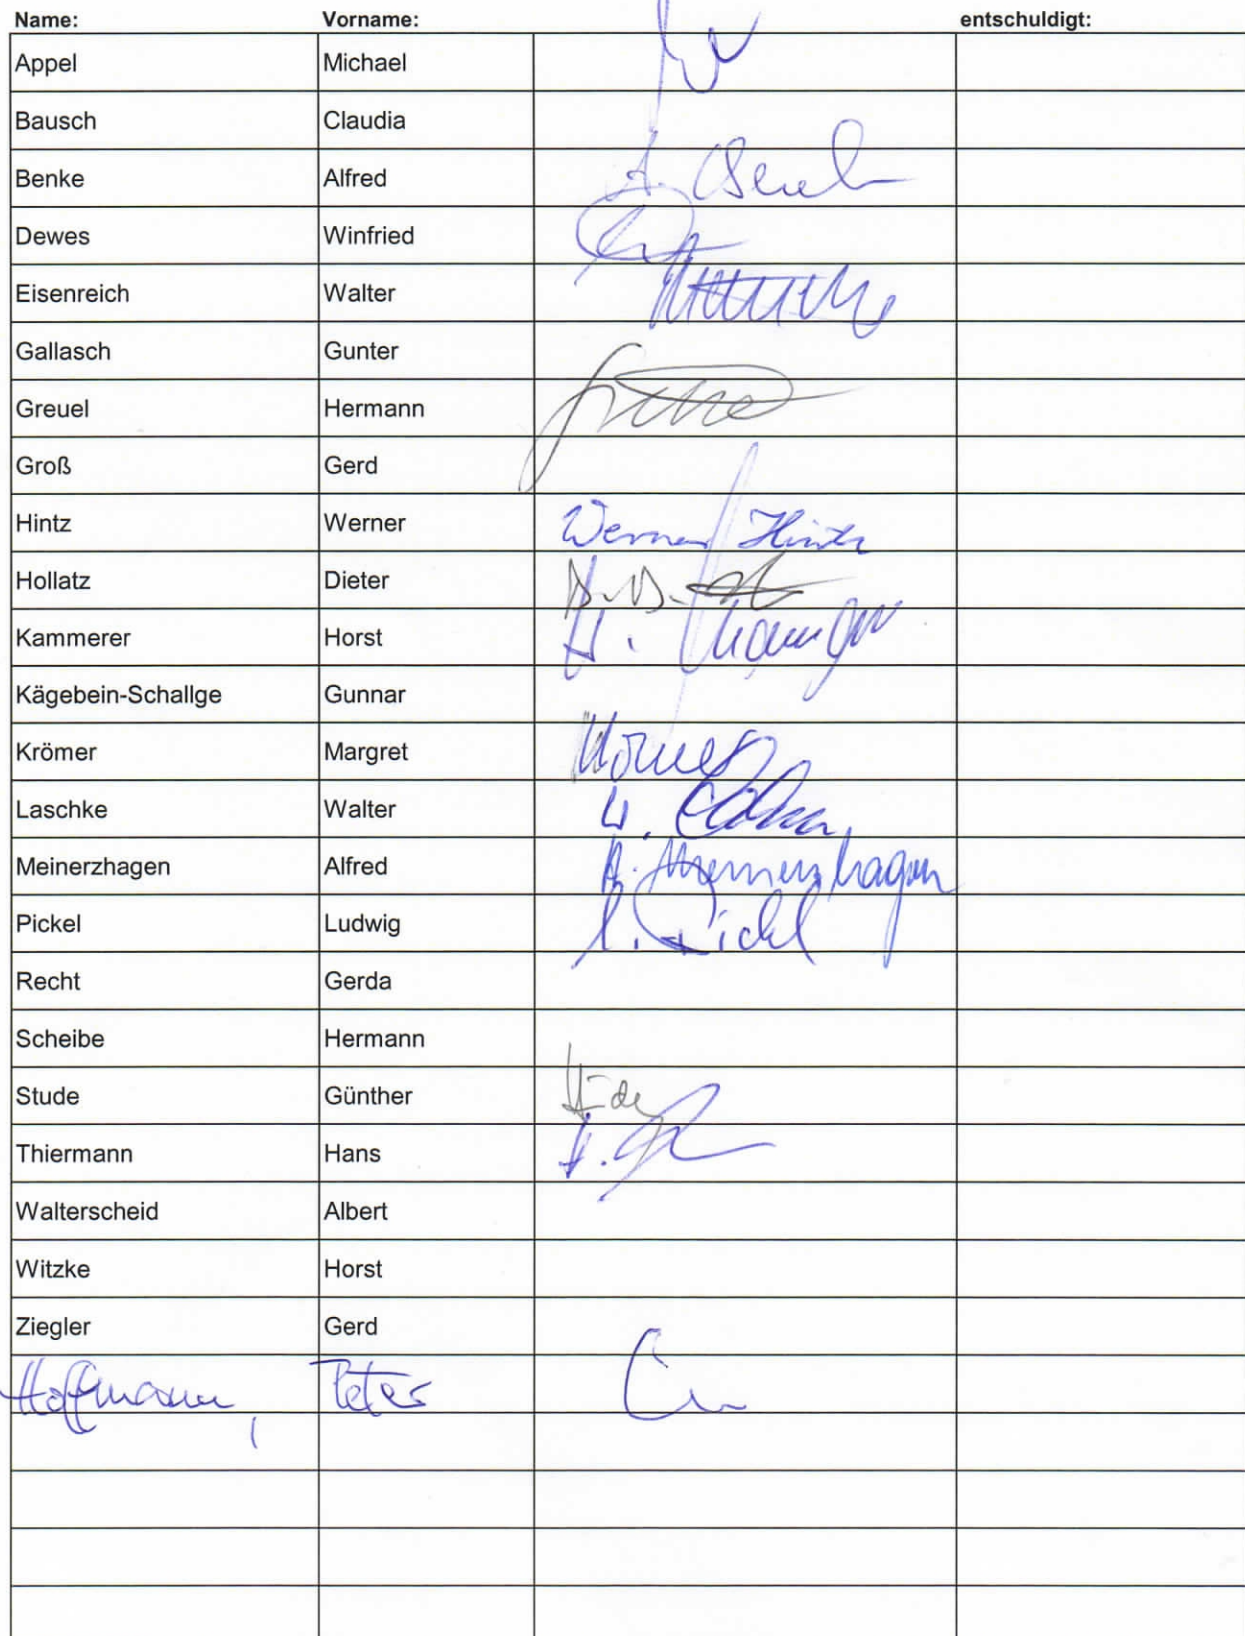 Name: Vorname: entschuldigt:
Appel Michael
Bausch Claudia
Benke Alfred
Dewes Winfried
Eisenreich Walter
Gallasch Gunter
Greuel Hermann
Groß Gerd
Hintz Werner Werner Hintz
Hollatz Dieter
Kammerer Horst
Kägebein-Schallge Gunnar
Krömer Margret
Laschke Walter
Meinerzhagen Alfred A. Meinerzhagen
Pickel Ludwig L. Pickel
Recht Gerda
Scheibe Hermann
Stude Günther
Thiermann Hans
Walterscheid Albert
Witzke Horst
Ziegler Gerd
Hoffmann, Peter